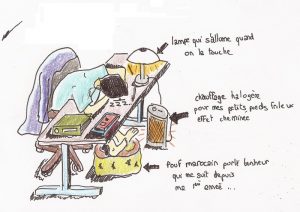 lampe qui s'allume quand
on la touche
chauffage halogène
pour mes petits pieds, frileux
effet cheminée
Pouf marocain porte bonheur
qui me suit depuis
ma 1ère année ...